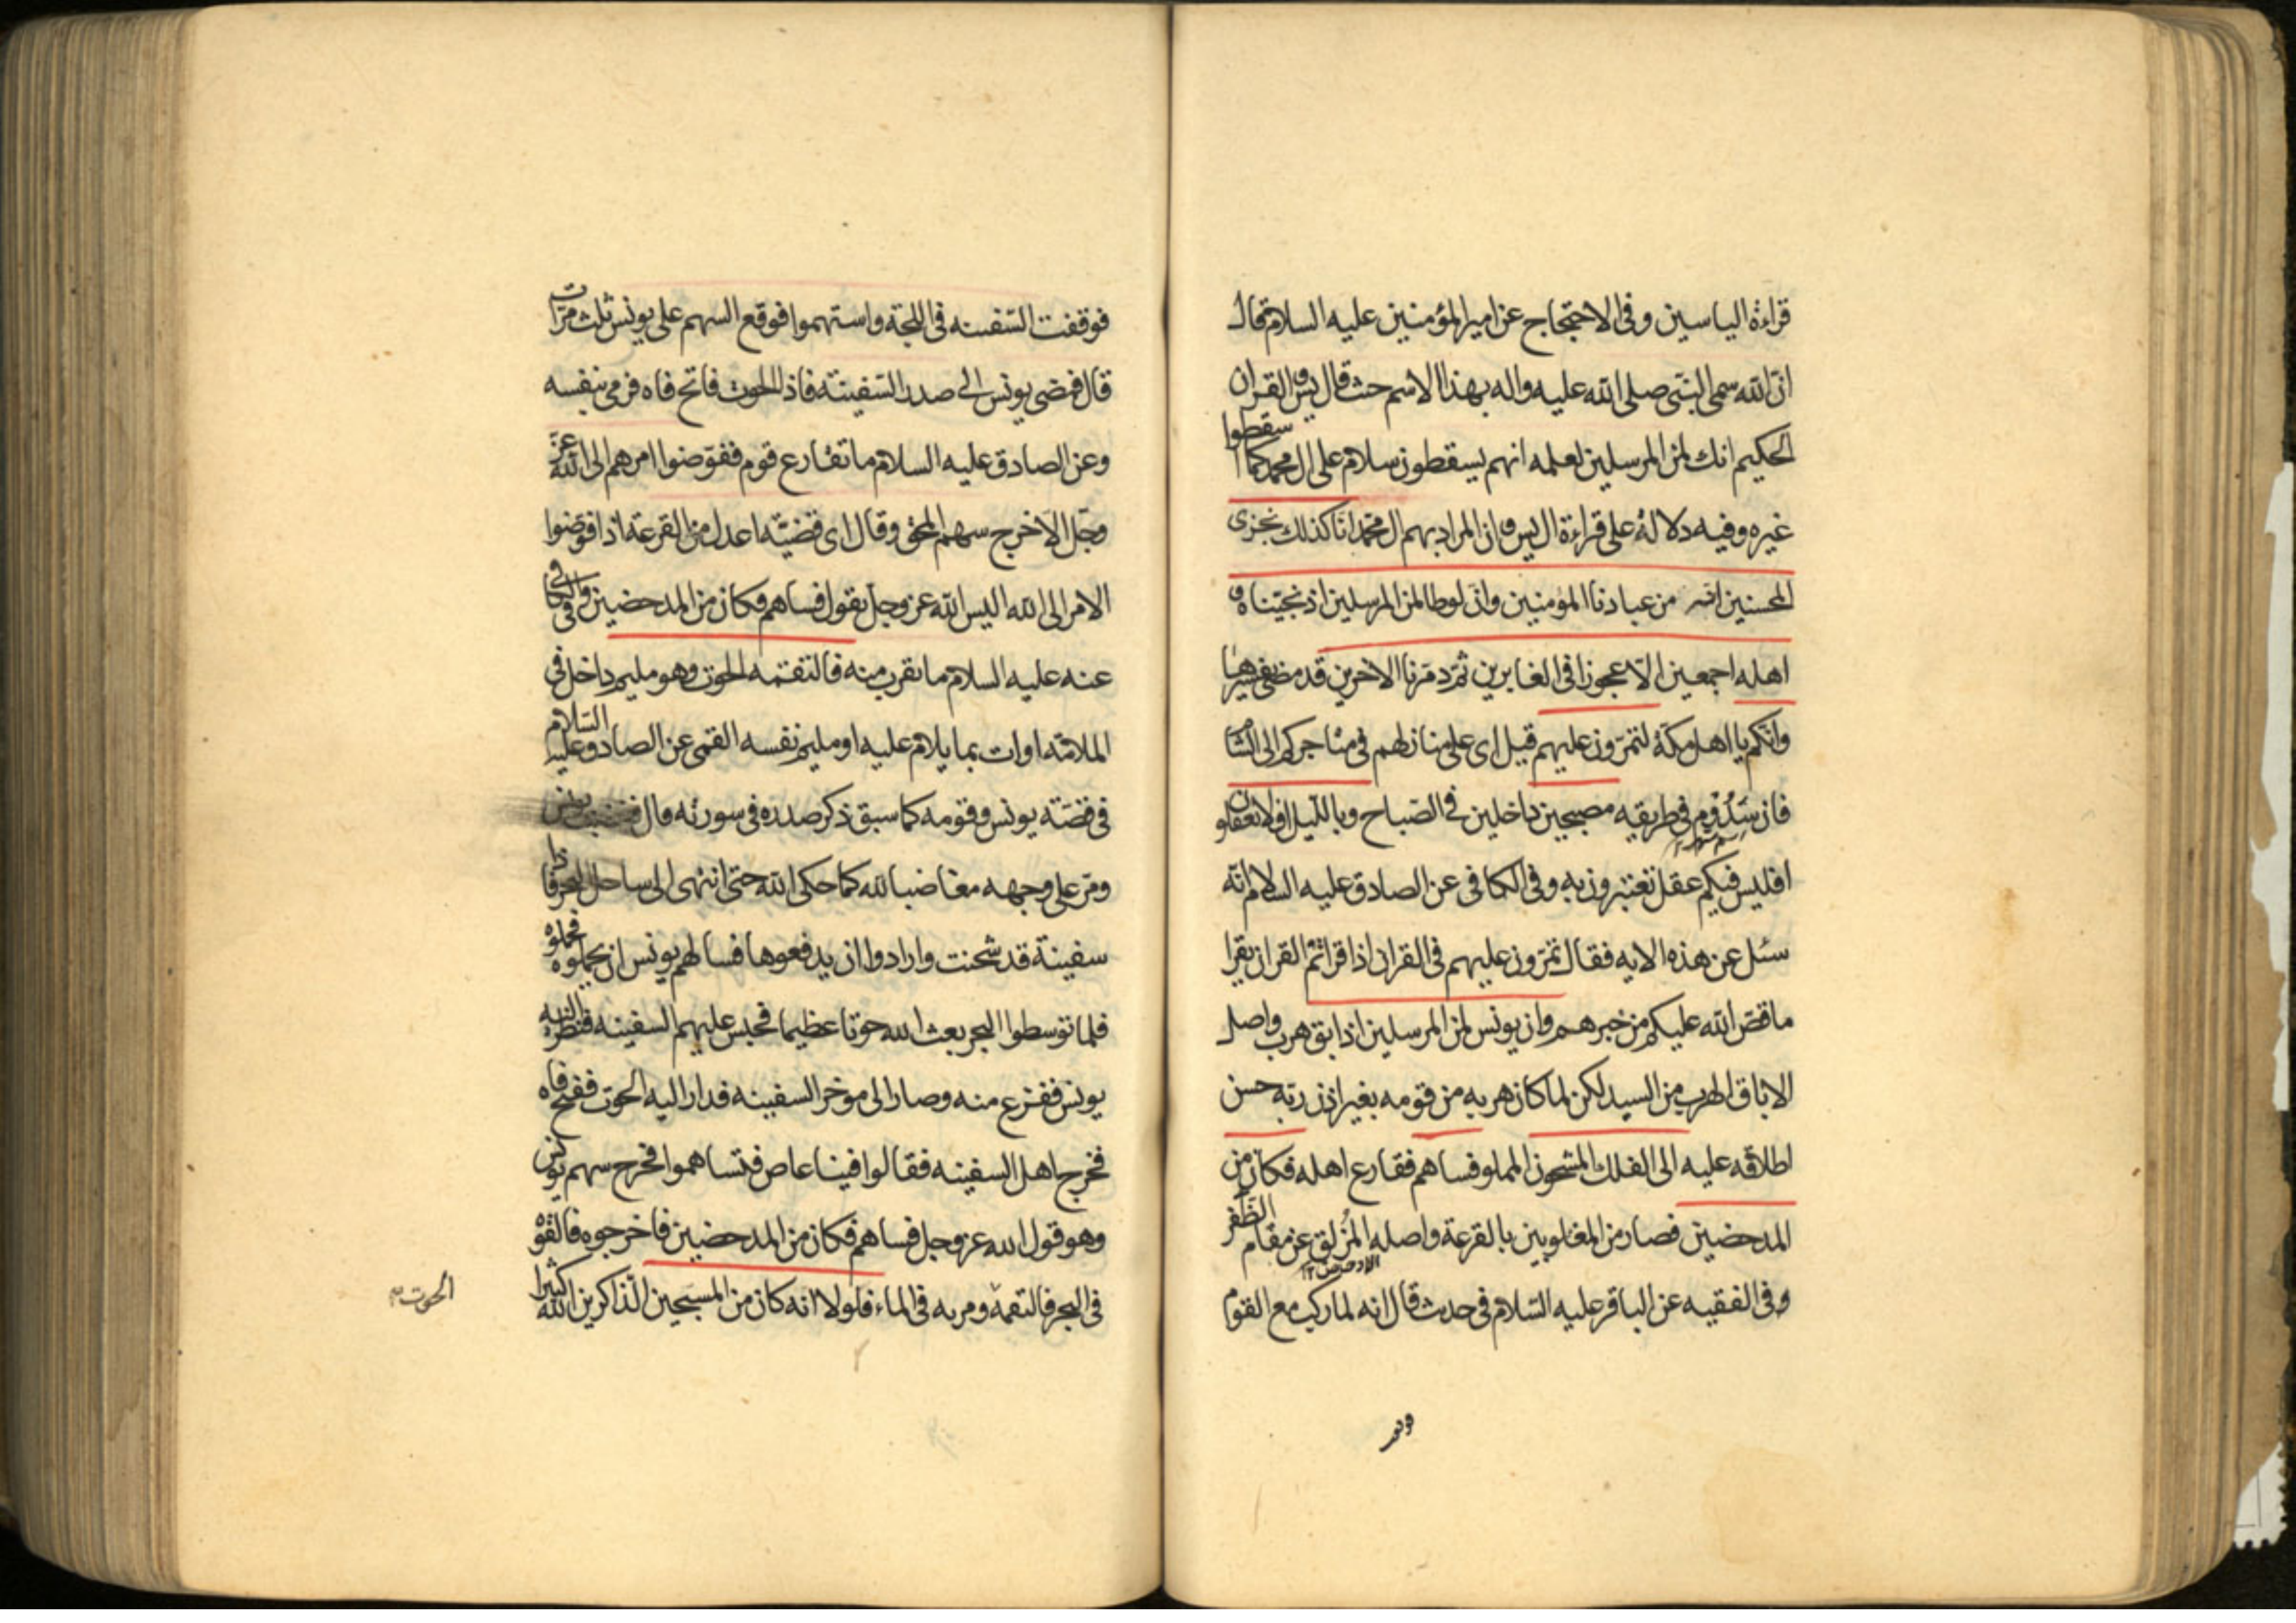 قراءة الياسين وفى الاحتجاج عن امير المؤمنين عليه السلام قال
ان الله سمى النبى صلى الله عليه واله بهذا الاسم حيث قال يس والقران
الحكيم انك لمن المرسلين لعلمه انهم يسقطون سلام على ال محمد كما اسقطوا
غيره وفيه دلالة على قراءة ال يس وان المراد بهم ال محمد انا كذلك نجزى
المحسنين انه من عبادنا المؤمنين وان لوطا لمن المرسلين اذ نجيناه و
اهله اجمعين الا عجوزا فى الغابرين ثم دمرنا الاخرين قد مضى تفسيرها
وانكم يا اهل مكة لتمرون عليهم قيل اى على منازلهم فى متاجركم الى الشام
فان سدوم فى طريقه مصبحين داخلين فى الصباح وبالليل افلا تعقلون
افليس فيكم عقل تعتبرون به وفى الكافى عن الصادق عليه السلام انه
سئل عن هذه الايه فقال تمرون عليهم فى القران اذا قراتم القران يقرا
ما قص الله عليكم من خبرهم وان يونس لمن المرسلين اذ ابق هرب واصل
الاباق الهرب من السيد لكن لما كان هربه من قومه بغير اذن ربه حسن
اطلاقه عليه الى الفلك المشحون المملو فساهم فقارع اهله فكان من
المدحضين فصار من المغلوبين بالقرعة واصله المزلق عن مقام الظفر
وفى الفقيه عن الباقر عليه السلام فى حديث قال انه لما ركب مع القوم
فوقفت السفينه فى اللجة واستهموا فوقع السهم على يونس ثلث مرات
قال فمضى يونس الى صدر السفينة فاذا الحوت فاتح فاه فرمى بنفسه
وعن الصادق عليه السلام ما تقارع قوم ففوضوا امرهم الى الله عز
وجل الا خرج سهم المحق وقال اى قضية اعدل من القرعة اذا فوضوا
الامر الى الله اليس الله عز وجل يقول فساهم فكان من المدحضين وفى الكافى
عنه عليه السلام ما يقرب منه فالتقمه الحوت وهو مليم داخل فى
الملامة او ات بما يلام عليه او مليم نفسه القمى عن الصادق عليه السلام
فى قصة يونس وقومه كما سبق ذكر صدره فى سورته قال فغضب يونس
ومر على وجهه مغاضبا لله كما حكى الله حتى انتهى الى ساحل البحر فاذا
سفينة قد شحنت وارادوا ان يدفعوها فسالهم يونس ان يحملوه فحملوه
فلما توسطوا البحر بعث الله حوتا عظيما فحبس عليهم السفينه فنظر اليه
يونس ففزع منه وصار الى موخر السفينه فدار اليه الحوت ففتح فاه
فخرج اهل السفينه فقالوا فينا عاص فتساهموا فخرج سهم يونس
وهو قول الله عز وجل فساهم فكان من المدحضين فاخرجوه فالقوه
فى البحر فالتقمه ومر به فى الماء فلولا انه كان من المسبحين الذاكرين الله كثيرا
الحوت